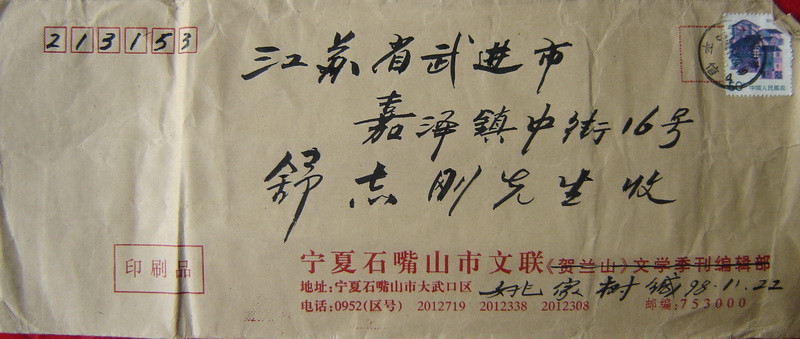 213153
江苏省武进市
嘉泽镇中街16号
舒志刚先生收
印刷品
宁夏石嘴山市文联《贺兰山》文学季刊编辑部
地址:宁夏石嘴山市大武口区 树缄 98.11.22
电话:0952(区号) 2012719 2012338 2012308 邮编:753000
中国人民邮政